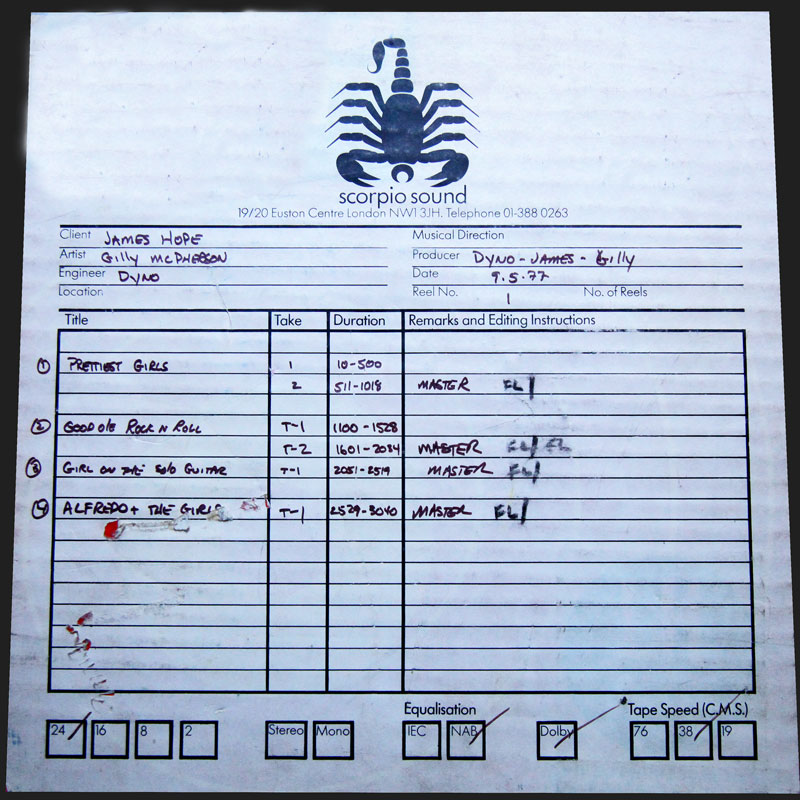 scorpio sound
19/20 Euston Centre London NW1 3JH. Telephone 01-388 0263
Client JAMES HOPE Musical Direction
Artist Gilly McPHERSON Producer DYNO - JAMES - Gilly
Engineer DYNO Date 9.5.77
Location Reel No. 1 No. of Reels
Title Take Duration Remarks and Editing Instructions
① PRETTIEST GIRLS 1 10-500
2 511-1018 MASTER EL/
② GOOD OlE ROCK N ROLL T-1 1100-1528
T-2 1601-2034 MASTER EL/ EL
③ GIRL ON THE GUITAR T-1 2051-2519 MASTER EL/
④ ALFREDO + THE GIRLS T-1 2529-3040 MASTER EL/
Equalisation Tape Speed (C.M.S.)
24 16 8 2 Stereo Mono IEC NAB Dolby 76 38 19